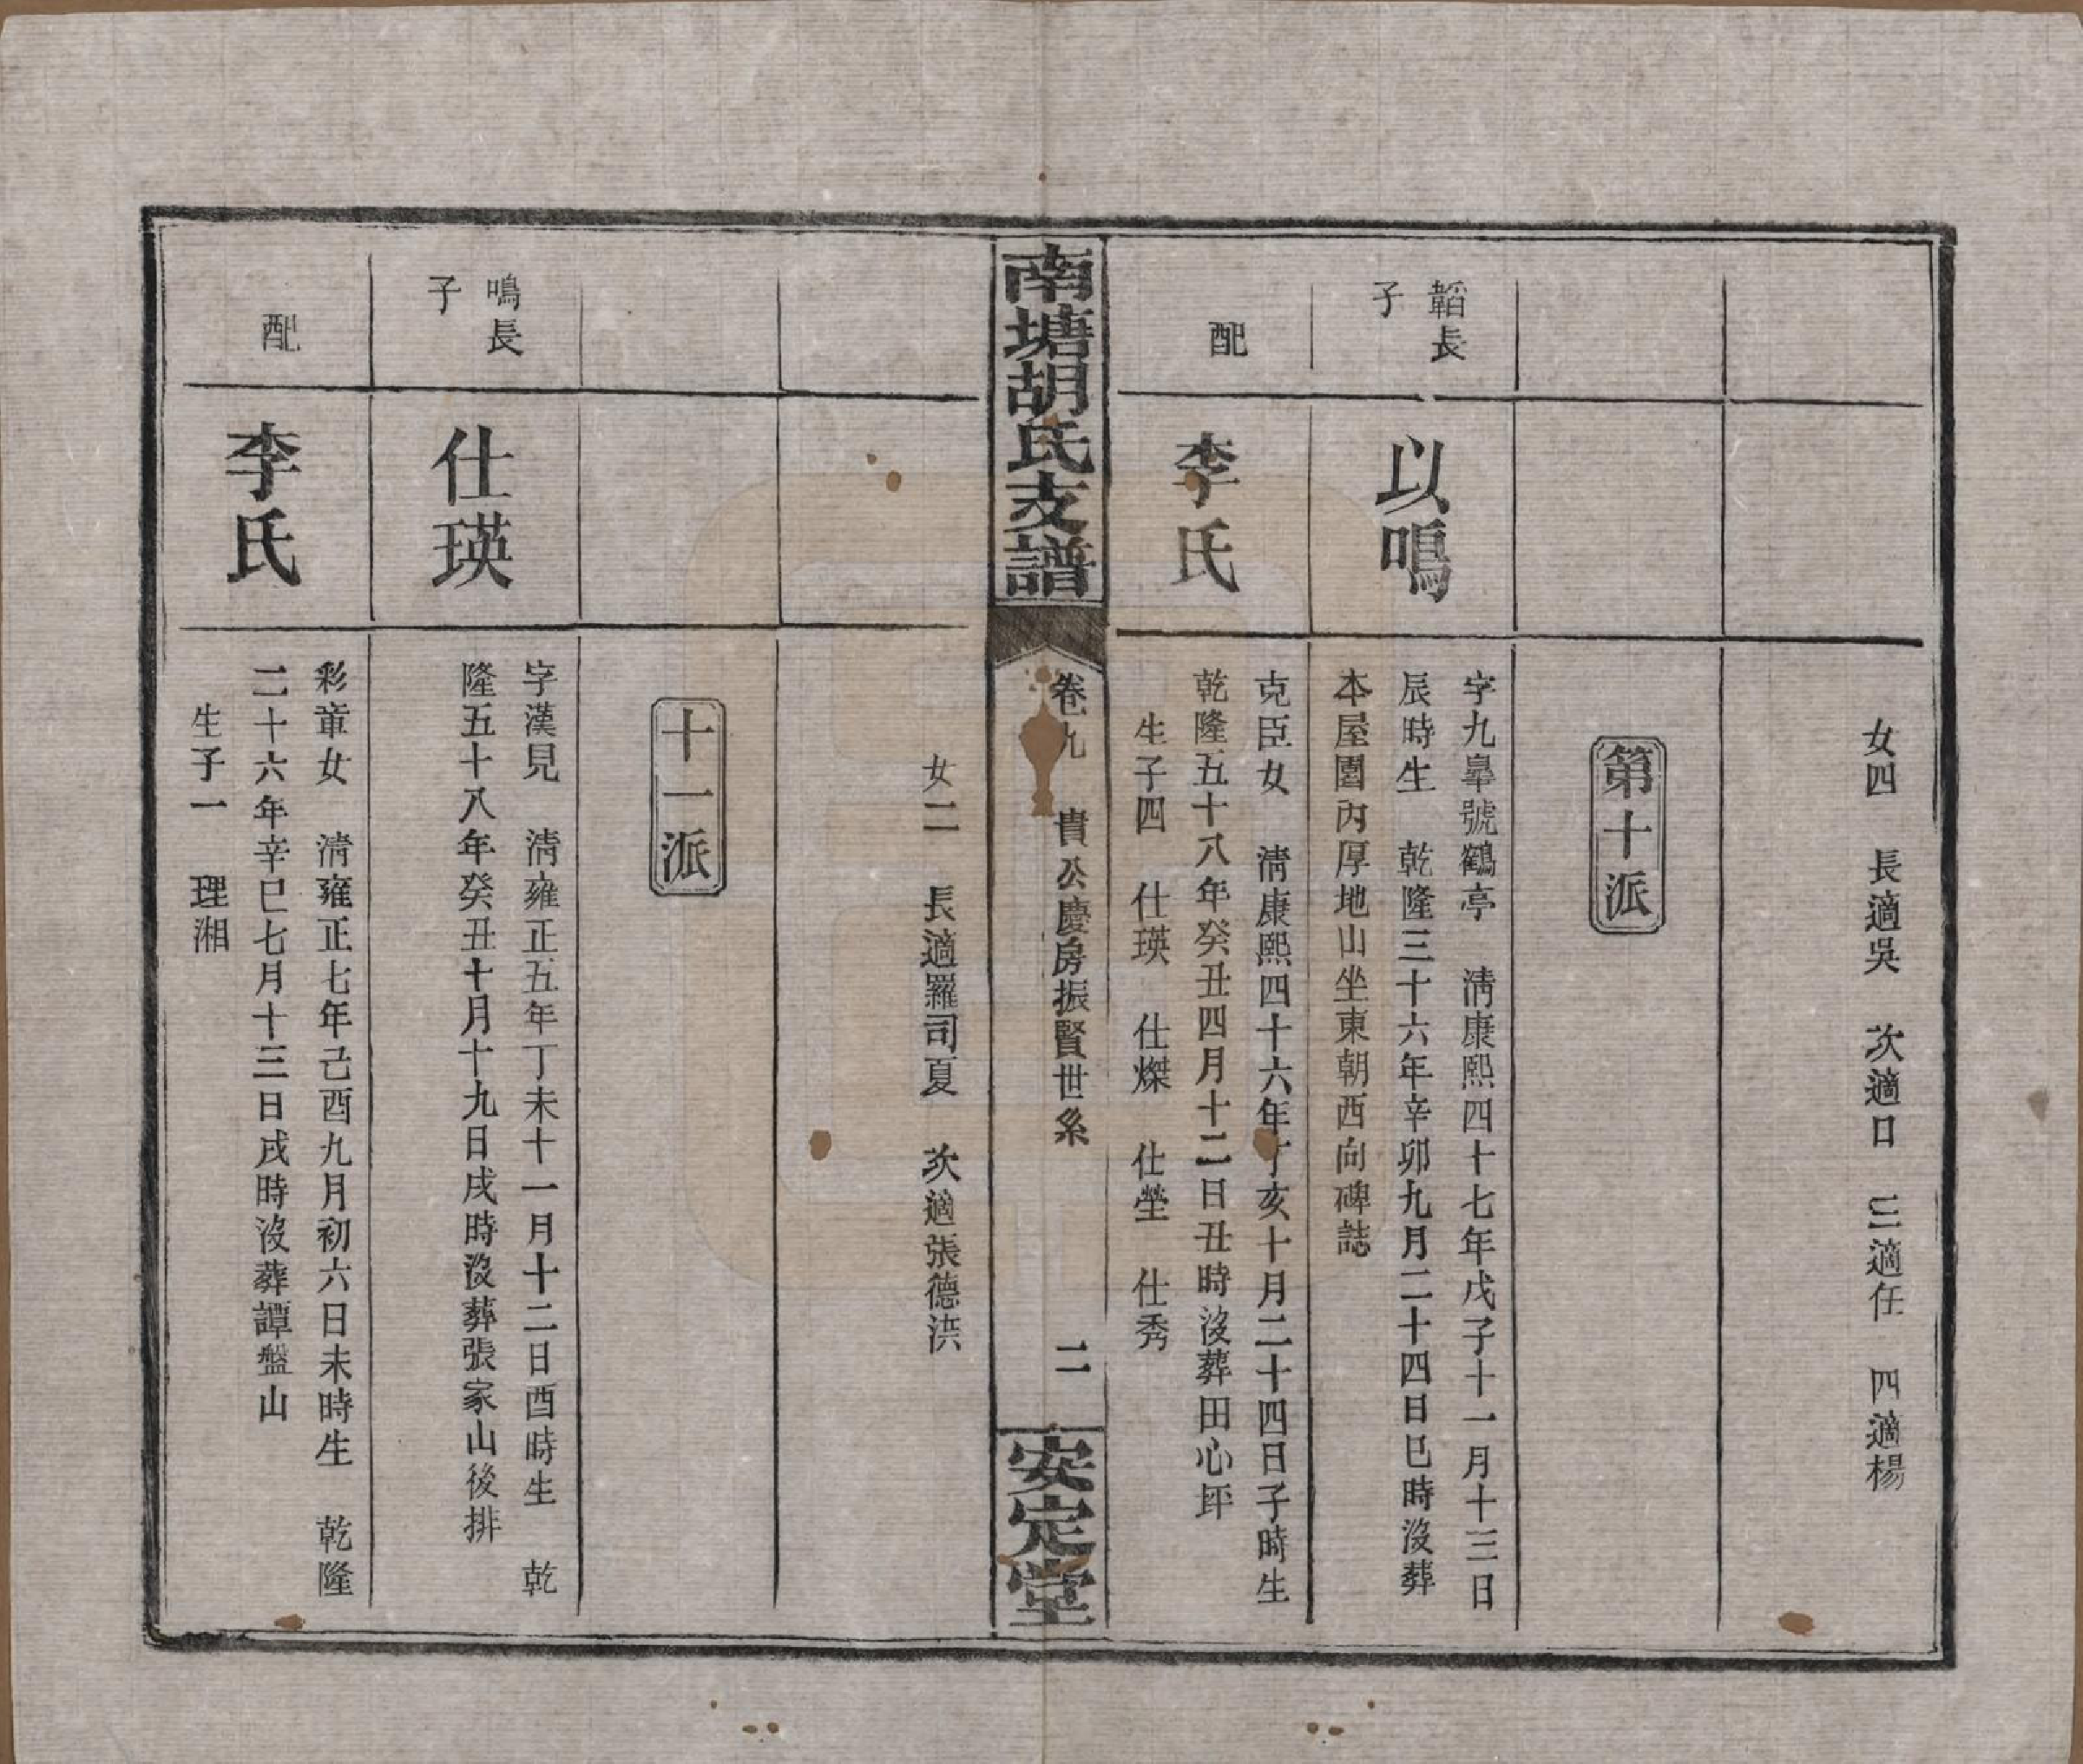 女四 長適吳 次適口 三適任 四適楊
第十派
韜長
子
以鳴
字九皋號鶴亭 清康熙四十七年戊子十一月十三日
辰時生 乾隆三十六年辛卯九月二十四日巳時沒葬
本屋園內厚地山坐東朝西向碑誌
配
李氏
克臣女 清康熙四十六年丁亥十月二十四日子時生
乾隆五十八年癸丑四月十二日丑時沒葬田心坪
生子四 仕瑛 仕燦 仕塋 仕秀
南塘胡氏支譜
卷九 貴公慶房振賢世系
二
安定堂
女二 長適羅司夏 次適張德洪
十一派
鳴長
子
仕瑛
字漢見 清雍正五年丁未十一月十二日酉時生 乾
隆五十八年癸丑十月十九日戌時沒葬張家山後排
配
李氏
彩章女 清雍正七年己酉九月初六日未時生 乾隆
二十六年辛巳七月十三日戌時沒葬譚盤山
生子一 理湘